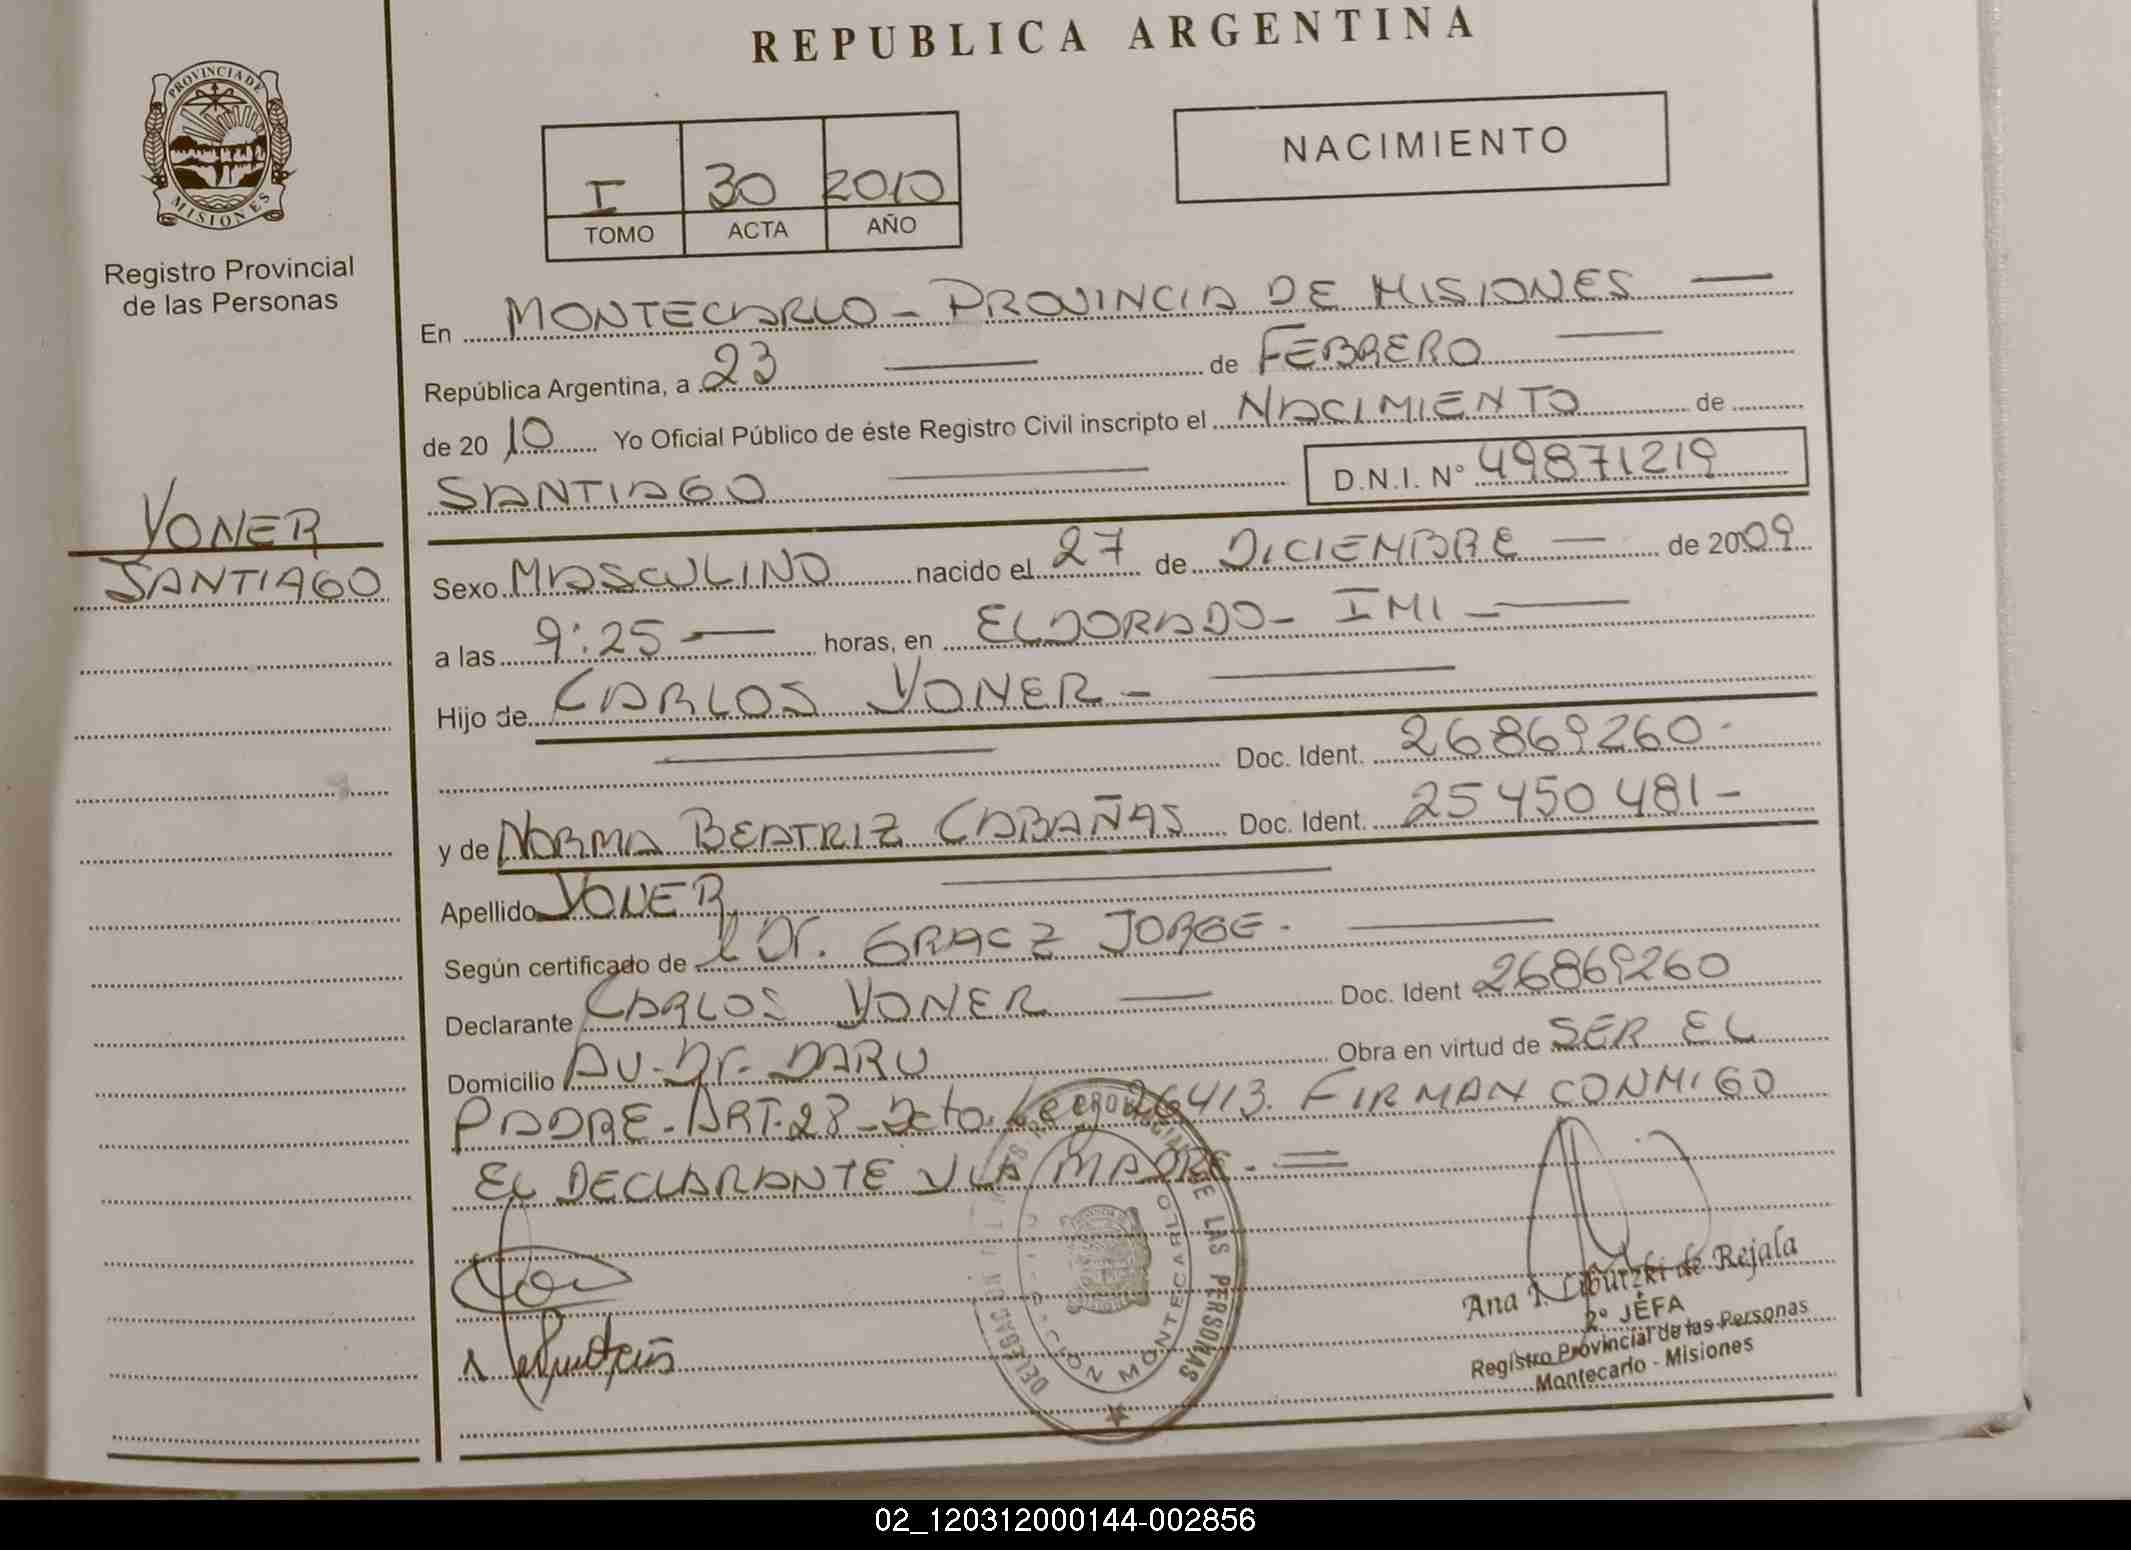 REPUBLICA ARGENTINA
PROVINCIA DE
MISIONES
Registro Provincial
de las Personas
I 30 2010
TOMO ACTA AÑO
NACIMIENTO
En MONTECARLO - PROVINCIA DE MISIONES —
República Argentina, a 23 — de FEBRERO —
de 20 10 Yo Oficial Público de éste Registro Civil inscripto el NACIMIENTO de
SANTIAGO — D.N.I. N° 49871219
YONER
SANTIAGO
Sexo MASCULINO nacido el 27 de DICIEMBRE — de 2009
a las 9:25 — horas, en ELDORADO - IMI —
Hijo de CARLOS YONER - —
— Doc. Ident. 26869260-
y de NORMA BEATRIZ CABAÑAS Doc. Ident. 25450481-
Apellido YONER —
Según certificado de l Dr. GRACZ JORGE. —
Declarante CARLOS YONER — Doc. Ident 26869260
Domicilio AV. Dr. DARU Obra en virtud de SER EL
PADRE - ART. 28 - Dcto. Ley 26413. FIRMAN CONMIGO
EL DECLARANTE Y LA MADRE. =
LAS PERSONAS
MONTECARLO
Ana I. de Rejala
2° JEFA
Registro Provincial de las Personas
Montecarlo - Misiones
02_120312000144-002856